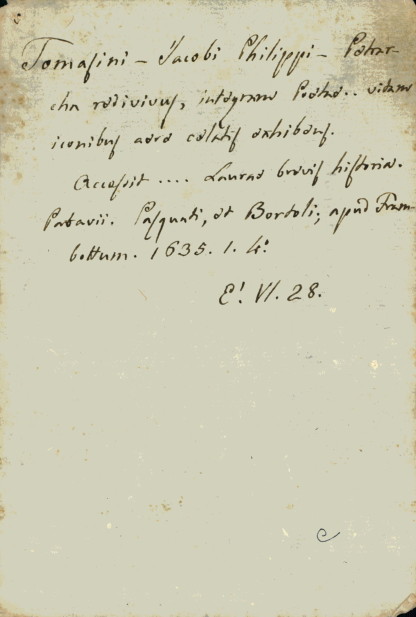 Tomasini - Jacobi Philippi - Petrar-
cha redivivus, integram Poetae.. vitam
iconibus aere celatis exhibens.
Accessit .... Laurae brevis historia.
Patavii. Pasquati, et Bortoli; apud Fram-
bottum. 1635. 1. 4º
E! VI. 28.
C